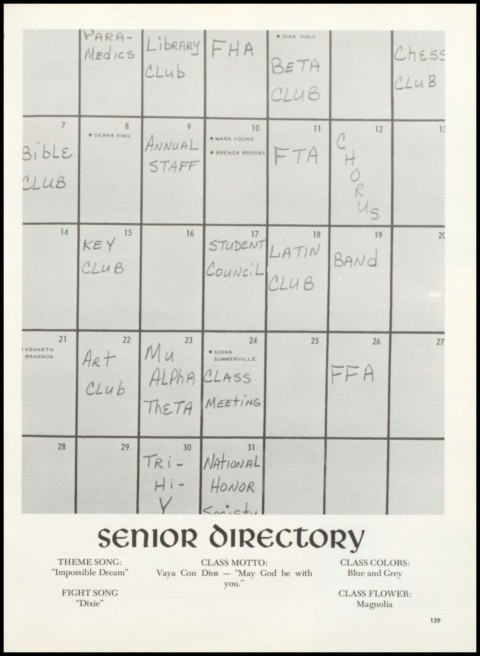 PARA-
MEDICS
LIBRARY
CLUB
FHA
DINA HULL
BETA
CLUB
CHESS
CLUB
7
BIBLE
CLUB
8
DEBRA KING
9
ANNUAL
STAFF
10
MARK YOUNG
BRENDA BROOKS
11
FTA
12
C
H
O
R
U
S
13
14
15
KEY
CLUB
16
17
STUDENT
COUNCIL
18
LATIN
CLUB
19
BAND
20
21
KENNETH
BRANNON
22
ART
CLUB
23
MU
ALPHA
THETA
24
SUSAN
SUMMERVILLE
CLASS
MEETING
25
26
FFA
27
28
29
30
TRI-
HI-
Y
31
NATIONAL
HONOR
SOCIETY
SENIOR DIRECTORY
THEME SONG:
"Impossible Dream"
FIGHT SONG
"Dixie"
CLASS MOTTO:
Vaya Con Dios — "May God be with
you."
CLASS COLORS:
Blue and Grey
CLASS FLOWER:
Magnolia
129